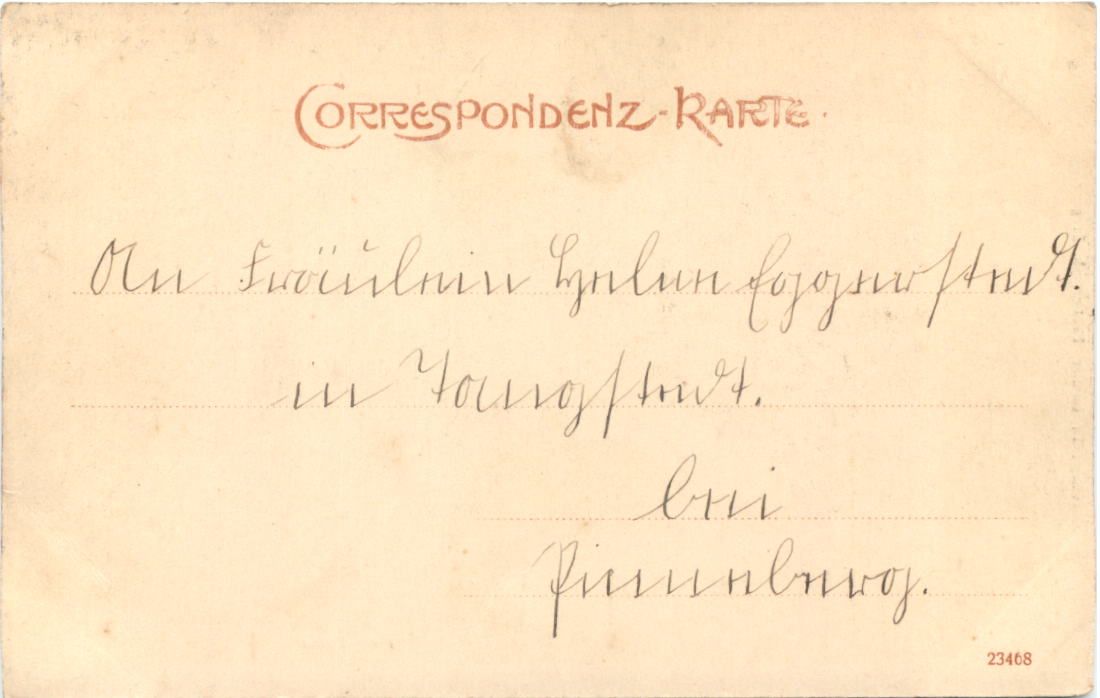 CORRESPONDENZ-KARTE.
An Fräulein Helene Eggerstedt.
in Tangstedt.
bei
Pinneberg.
23468